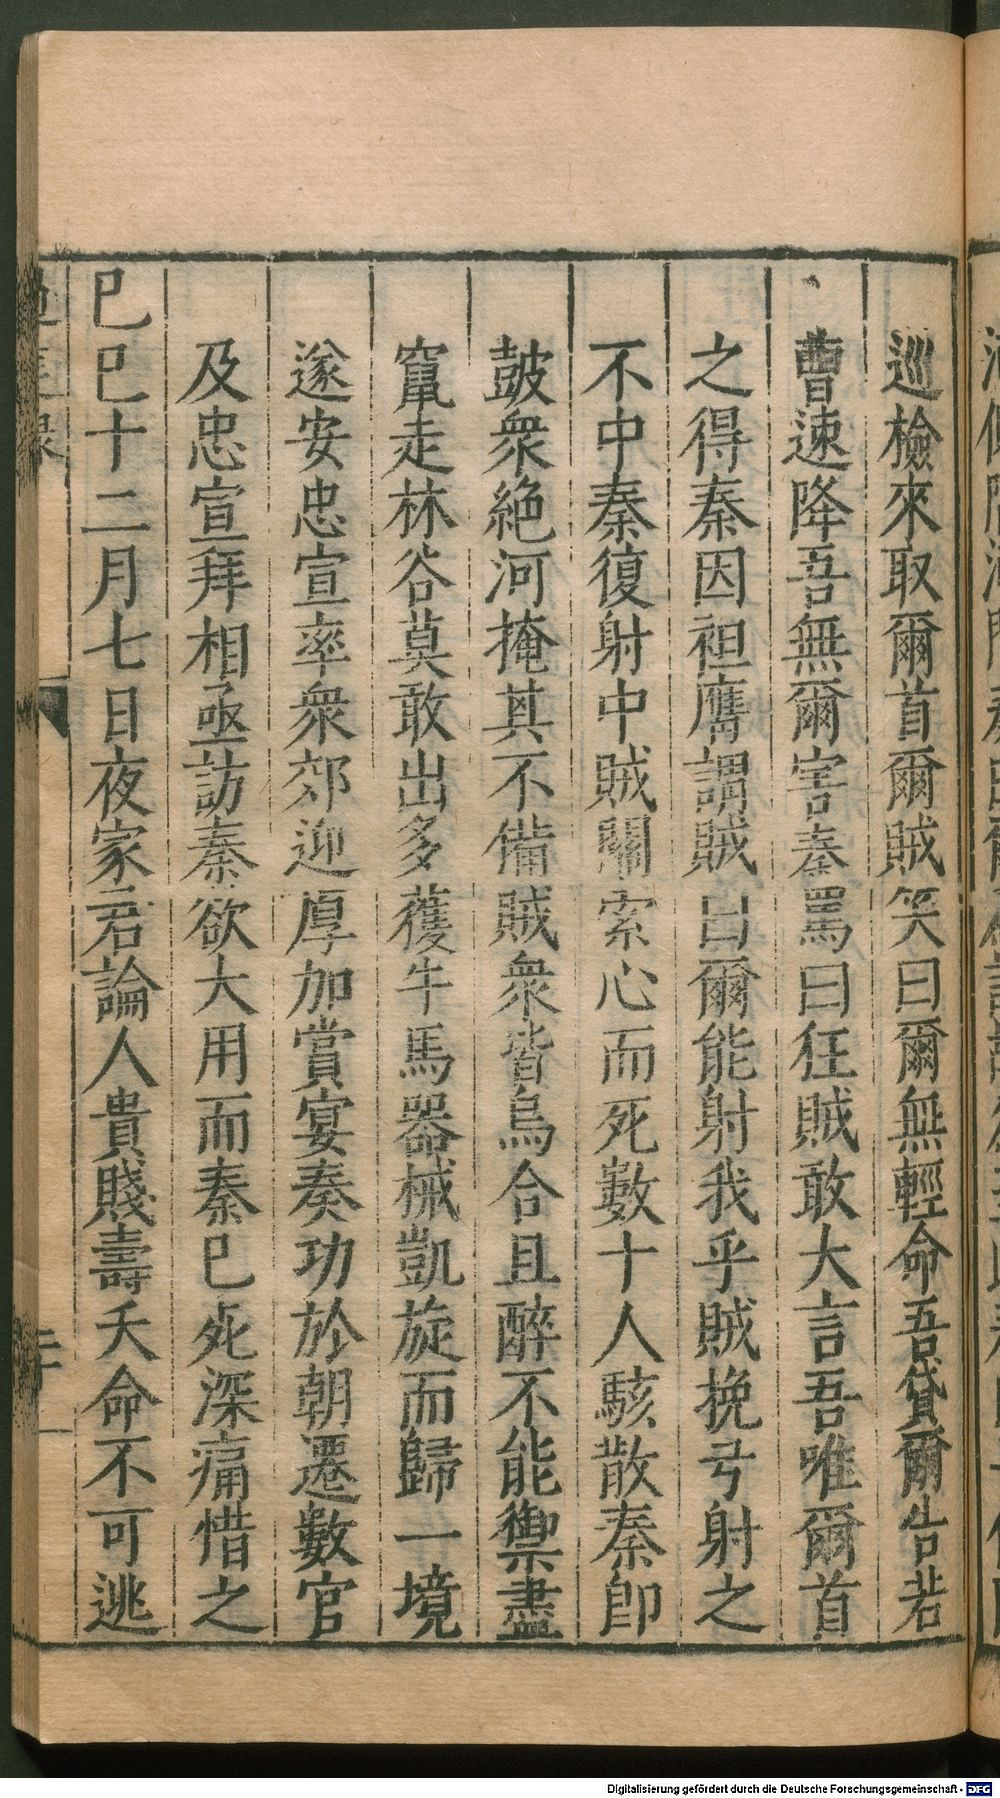 巡檢來取爾首爾賊笑曰爾無輕命吾貸爾告若
曹速降吾無爾害秦罵曰狂賊敢大言吾唯爾首
之得秦因袒膺謂賊曰爾能射我乎賊挽弓射之
不中秦復射中賊關索心而死數十人駭散秦即
鼓衆絶河掩其不備賊衆皆烏合且醉不能禦盡
竄走林谷莫敢出多獲牛馬器械凱旋而歸一境
遂安忠宣率衆郊迎厚加賞宴奏功於朝遷數官
及忠宣拜相亟訪秦欲大用而秦已死深痛惜之
己巳十二月七日夜家君論人貴賤壽夭命不可逃
Digitalisierung gefördert durch die Deutsche Forschungsgemeinschaft - DFG